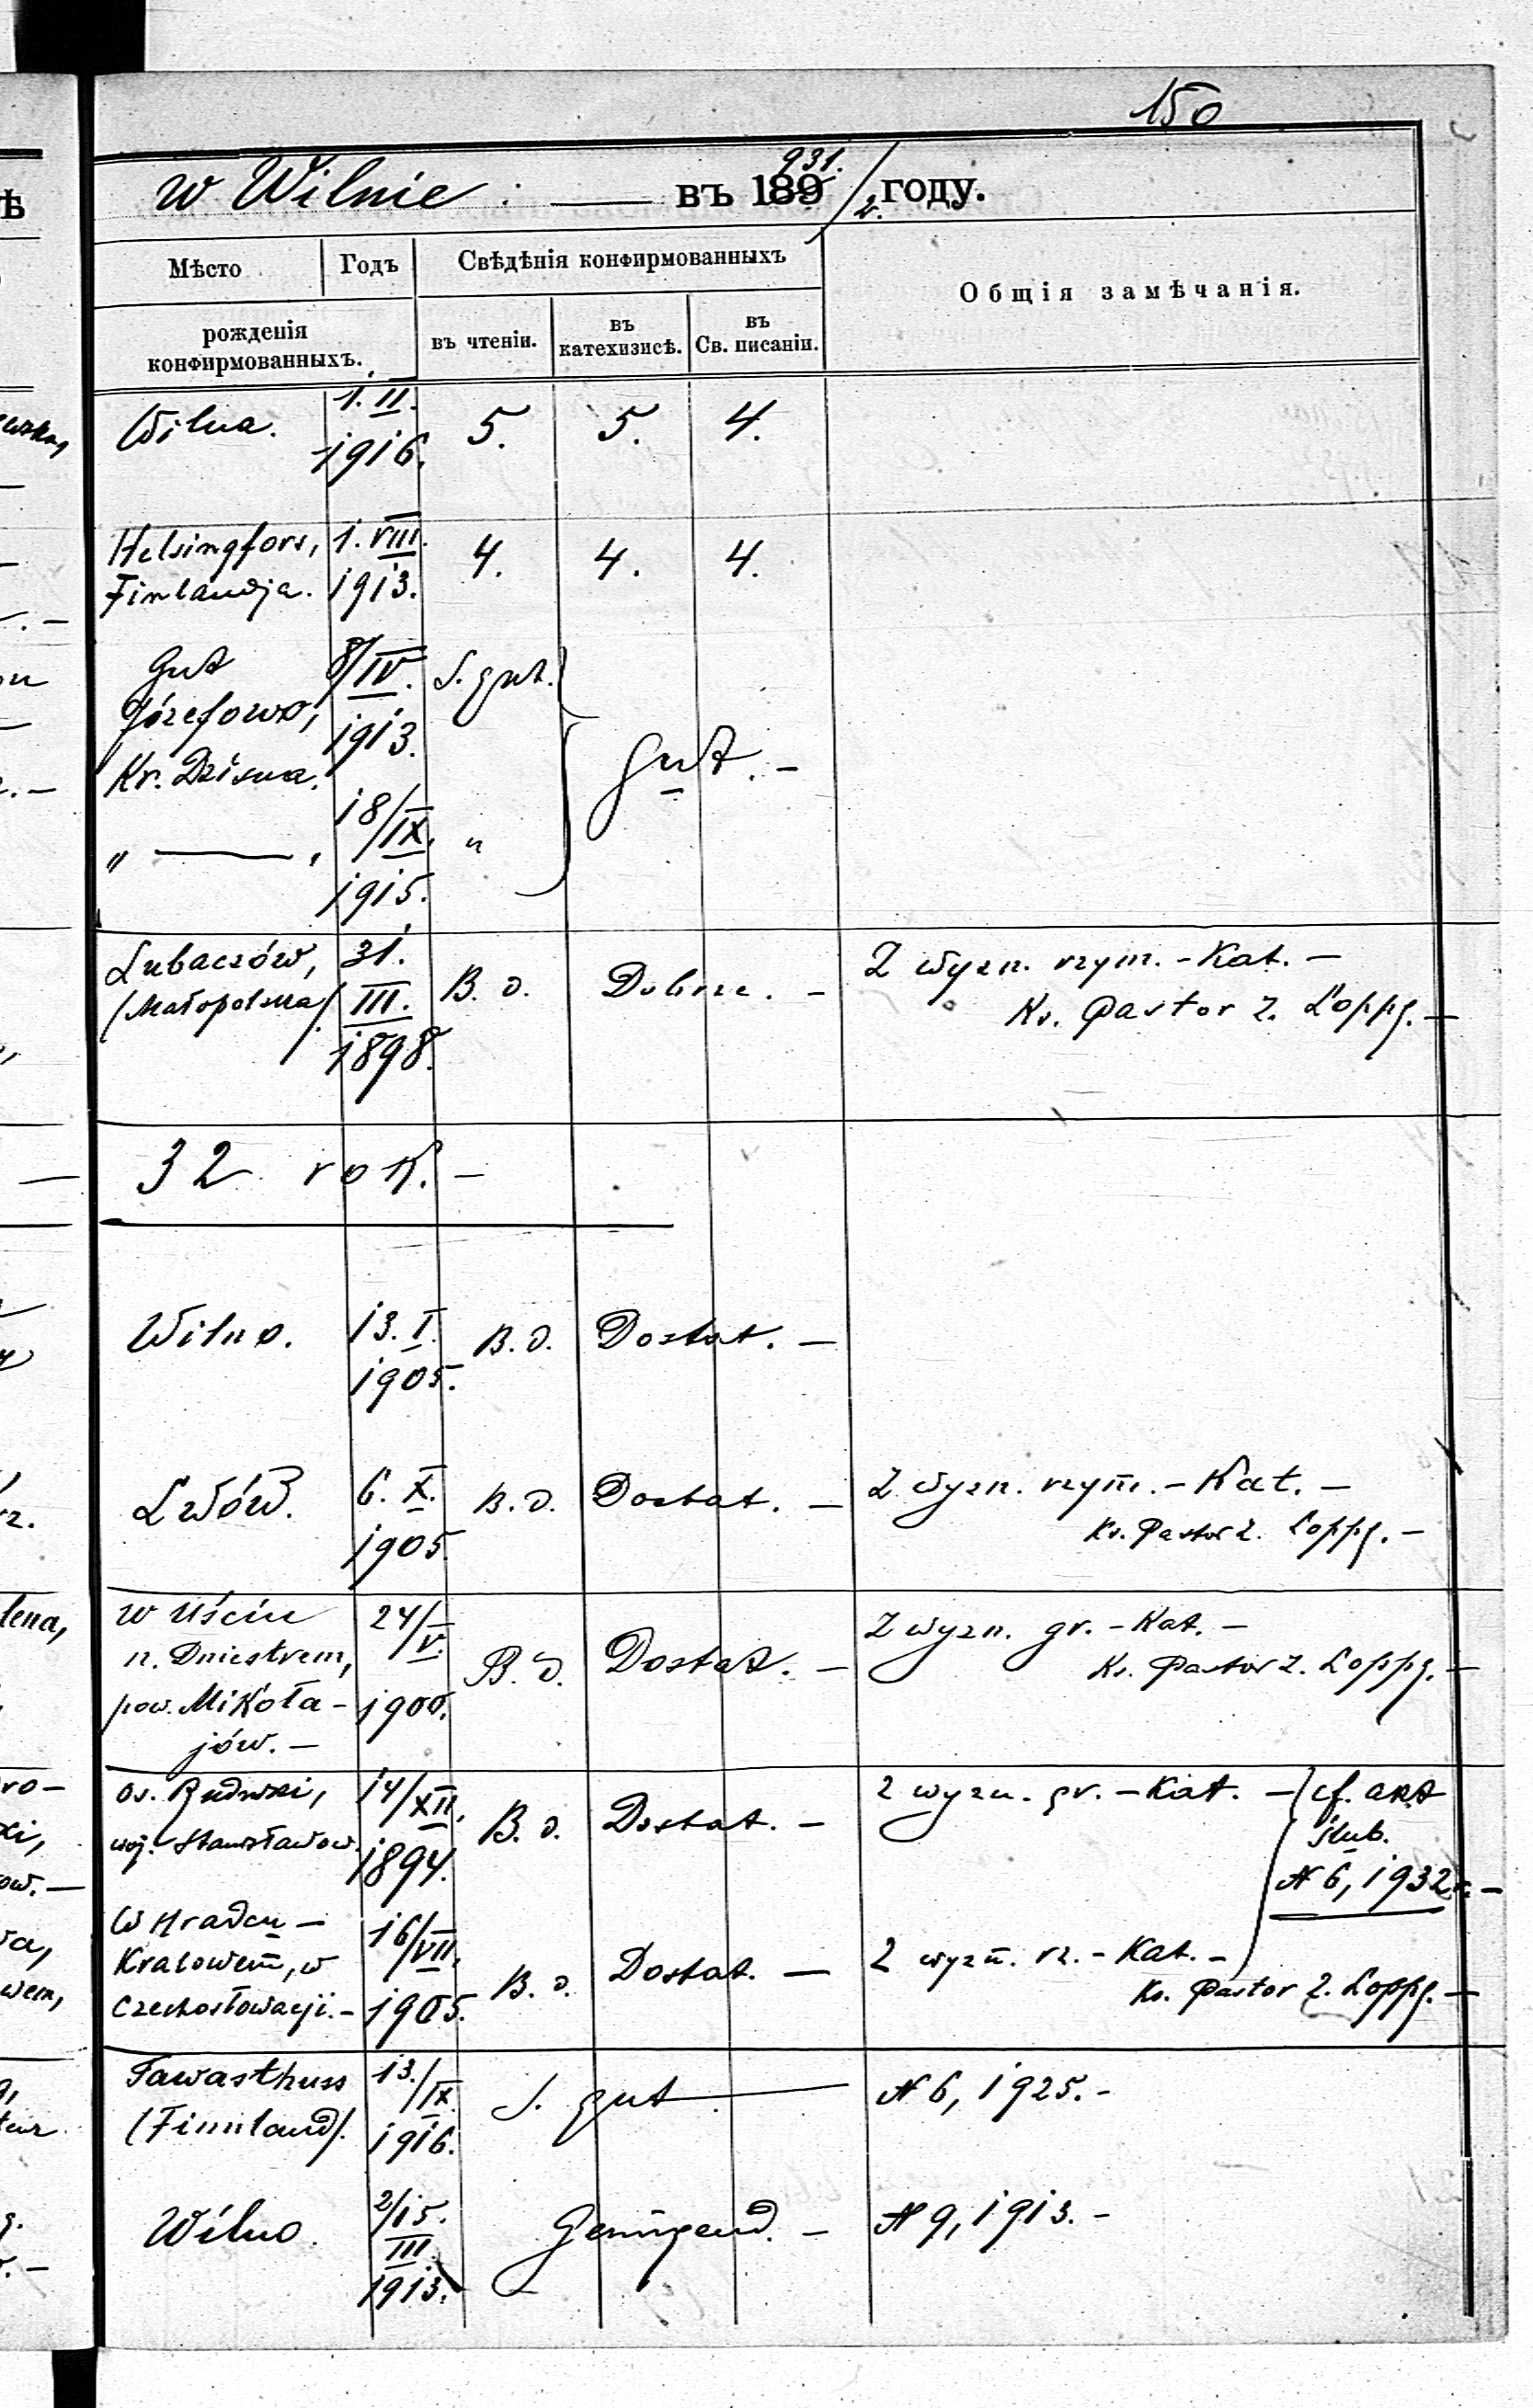 150
w Wilnie. — въ 189 931./2. году.
Мѣсто Годъ Свѣдѣнія конфирмованныхъ Общія замѣчанія.
рожденія
конфирмованныхъ.
въ чтеніи. въ катехизисѣ. въ Св. писаніи.
Wilna. 1. II. 1916. 5. 5. 4.
Helsingfors, 1. VIII. 4. 4. 4.
Finlandja. 1913.
Gut 8/IV. S. gut.
Józefowo, 1913.
Kr. Dzisna. gut. –
" —, 18/IX. "
1915.
Lubaczów, 31. B. d. Dobrze. – Z wyzn. rzym. - Kat. –
(Małopolska). III. Ks. Pastor Z. Loppe. –
1898.
32 rok. –
Wilno. 13. I. B. d. Dostat. –
1905.
Lwów. 6. X. B. d. Dostat. – Z wyzn. rzym. - Kat. –
1905. Ks. Pastor Z. Loppe. –
w Uściu 24/V. B. d. Dostat. – Z wyzn. gr. - Kat. –
n. Dniestrem, Ks. Pastor Z. Loppe. –
pow. Mikoła- 1900.
jów. –
os. Rudniki, 14/XII. B. d. Dostat. – Z wyzn. gr. - Kat. – cf. akt
woj. Stanisławow. 1894. ślub.
N 6, 1932 r. –
W Hradcu – 16/VII. B. d. Dostat. – Z wyzn. rz. - Kat. –
Kralowem, w Ks. Pastor Z. Loppe. –
Czechosłowacji. – 1905.
Tawasthuss 13./IX. S. gut — N 6, 1925. –
(Finnland). 1916.
Wilno. 2/15. Genügend. – N 9, 1913. –
III.
1913.